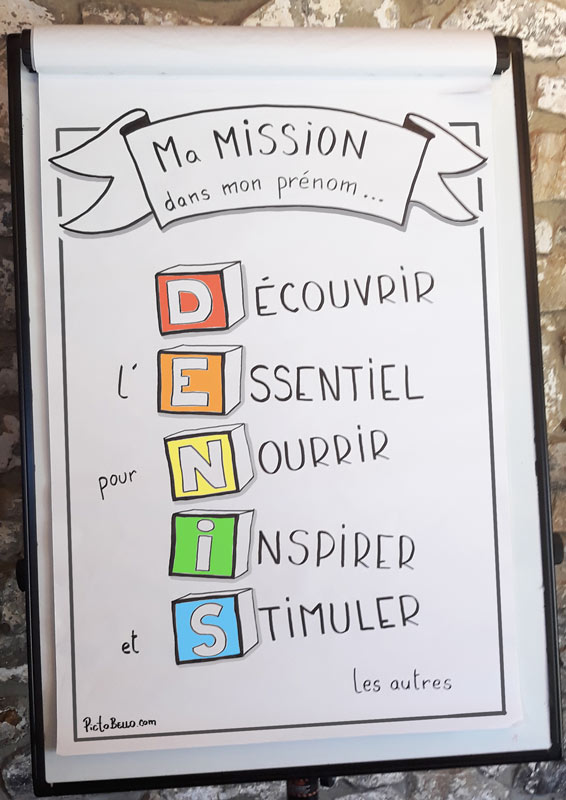 Ma MiSSiON
dans mon prénom...
DÉCOUVRiR
l'ESSENTiEL
pour NOURRiR
iNSPiRER
et STiMULER
les autres
PictoBello.com